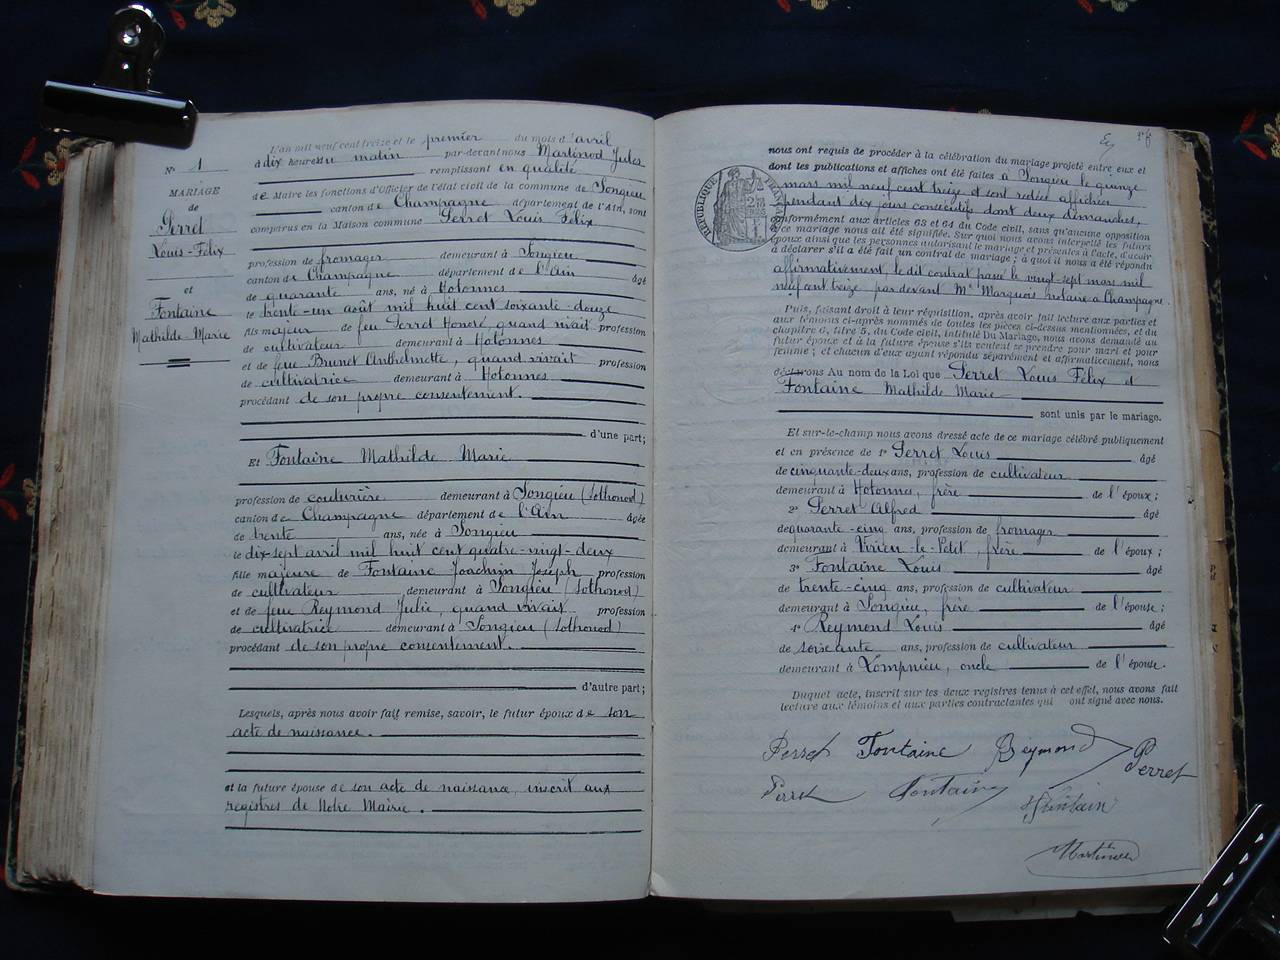 N° 1
MARIAGE
de
Perret
Louis-Félix
et
Fontaine
Mathilde-Marie
L'an mil neuf cent treize et le premier du mois d'avril
à dix heures du matin par-devant nous Martinod Jules
remplissant en qualité
de Maire les fonctions d'Officier de l'état civil de la commune de Songieu
canton de Champagne département de l'Ain, sont
comparus en la Maison commune Perret Louis Félix
profession de fromager demeurant à Songieu
canton de Champagne département de l'Ain âgé
de quarante ans, né à Hotonnes
le trente-un août mil huit cent soixante-douze
fils majeur de feu Perret Honoré, quand vivait profession
de cultivateur demeurant à Hotonnes
et de feue Brunet Anthelmette, quand vivait profession
de cultivatrice demeurant à Hotonnes
procédant de son propre consentement.
d'une part;
Et Fontaine Mathilde Marie
profession de couturière demeurant à Songieu (Lothonod)
canton de Champagne département de l'Ain âgée
de trente ans, née à Songieu
le dix-sept avril mil huit cent quatre-vingt-deux
fille majeure de Fontaine Joachim Joseph profession
de cultivateur demeurant à Songieu (Lothonod)
et de feue Reymond Julie, quand vivait profession
de cultivatrice demeurant à Songieu (Lothonod)
procédant de son propre consentement.
d'autre part;
Lesquels, après nous avoir fait remise, savoir, le futur époux de son
acte de naissance.
et la future épouse de son acte de naissance, inscrit aux
registres de Notre Mairie.
nous ont requis de procéder à la célébration du mariage projeté entre eux et
dont les publications et affiches ont été faites à Songieu le quinze
mars mil neuf cent treize et sont restées affichées
pendant dix jours consécutifs dont deux dimanches,
conformément aux articles 63 et 64 du Code civil, sans qu'aucune opposition
à ce mariage nous ait été signifiée. Sur quoi nous avons interpellé les futurs
époux ainsi que les personnes autorisant le mariage et présentes à l'acte, d'avoir
à déclarer s'il a été fait un contrat de mariage; à quoi il nous a été répondu
affirmativement, le dit contrat passé le vingt-sept mars mil
neuf cent treize par devant Me Marquois notaire à Champagne.
Puis, faisant droit à leur réquisition, après avoir fait lecture aux parties et
aux témoins ci-après nommés de toutes les pièces ci-dessus mentionnées, et du
chapitre 6, titre 5, du Code civil, intitulé Du Mariage, nous avons demandé au
futur époux et à la future épouse s'ils veulent se prendre pour mari et pour
femme; et chacun d'eux ayant répondu séparément et affirmativement, nous
déclarons Au nom de la Loi que Perret Louis Félix et
Fontaine Mathilde Marie
sont unis par le mariage.
Et sur-le-champ nous avons dressé acte de ce mariage célébré publiquement
et en présence de 1° Perret Louis âgé
de cinquante-deux ans, profession de cultivateur
demeurant à Hotonnes, frère de l'époux;
2° Perret Alfred âgé
de quarante-cinq ans, profession de fromager
demeurant à Virieu-le-Petit, frère de l'époux;
3° Fontaine Louis âgé
de trente-cinq ans, profession de cultivateur
demeurant à Songieu, frère de l'épouse;
4° Reymond Louis âgé
de soixante ans, profession de cultivateur
demeurant à Lompnieu, oncle de l'épouse.
Duquel acte, inscrit sur les deux registres tenus à cet effet, nous avons fait
lecture aux témoins et aux parties contractantes qui ont signé avec nous.
Perret Fontaine Reymond Perret
Perret Fontaine Fontaine
Martinod
RÉPUBLIQUE FRANÇAISE